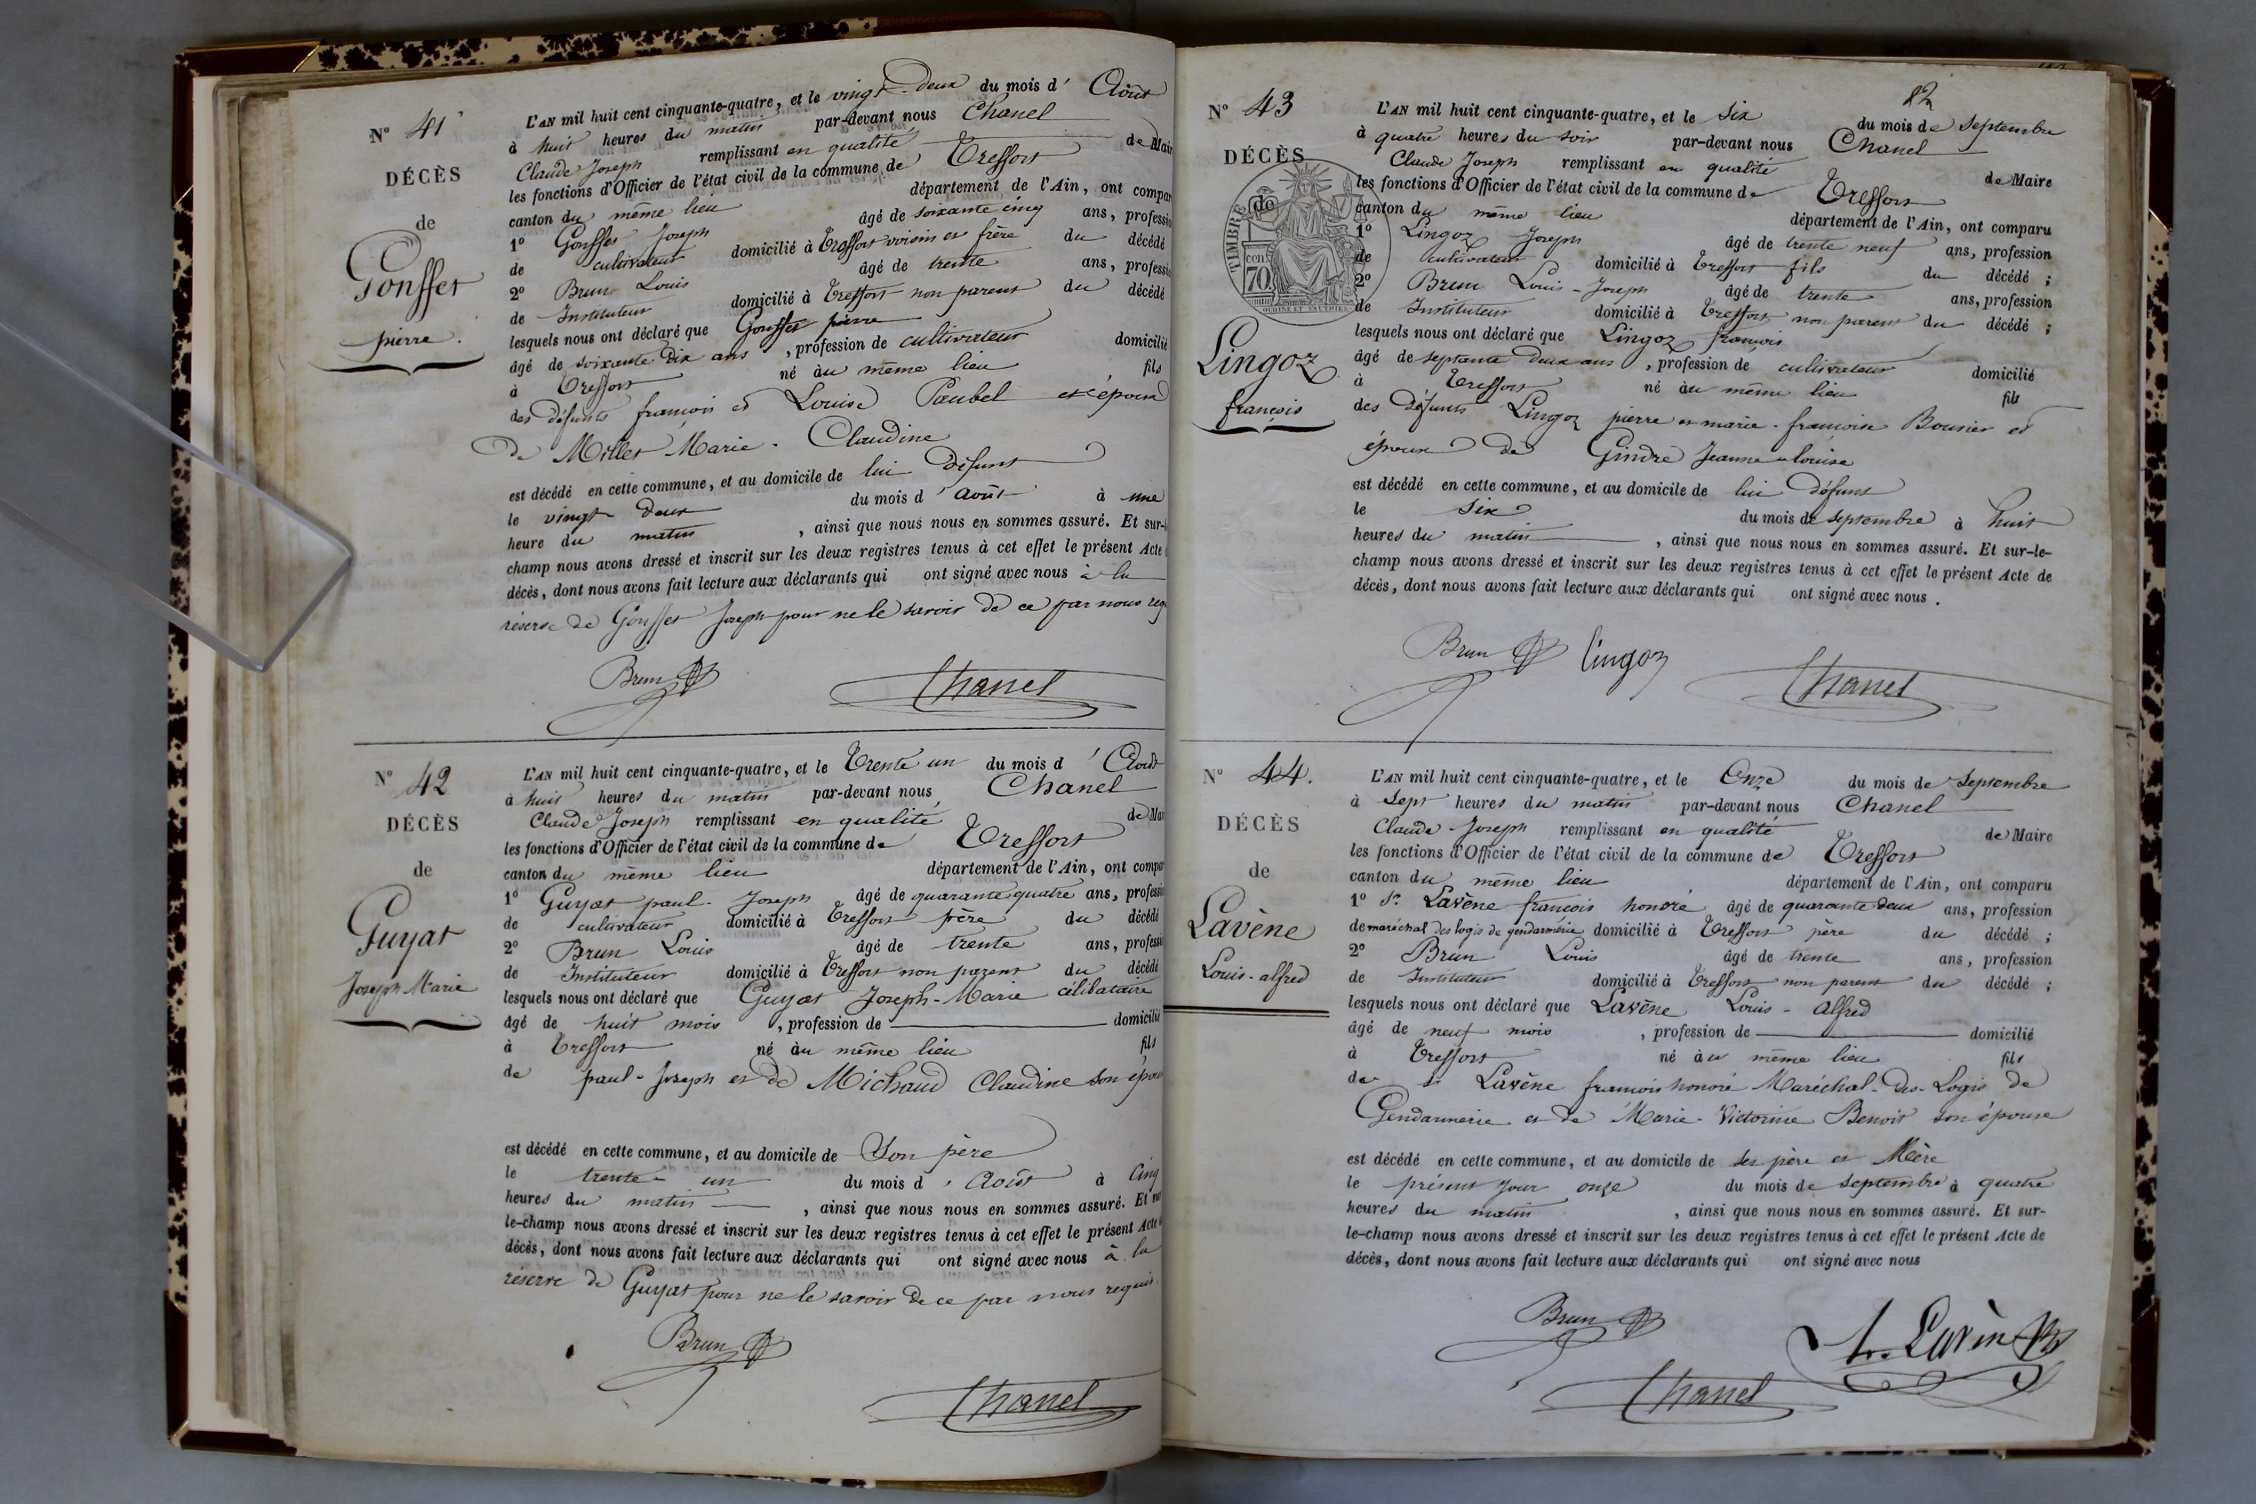 N° 41
DÉCÈS
de
Gonsset
pierre.
L'AN mil huit cent cinquante-quatre, et le vingt-deux du mois d'Août
à huit heures du matin par-devant nous Chanel
Claude Joseph remplissant en qualité de Mair
les fonctions d'Officier de l'état civil de la commune de Treffort
canton du même lieu département de l'Ain, ont compar
1° Gonsset Joseph âgé de soixante cinq ans, professio
de cultivateur domicilié à Treffort voisin et frère du décédé
2° Brun Louis âgé de trente ans, professio
de Instituteur domicilié à Treffort non parent du décédé
lesquels nous ont déclaré que Gonsset pierre
âgé de soixante dix ans, profession de cultivateur domicilié
à Treffort né au même lieu fils
des défunts françois et Louise Paubel et époux
de Millet Marie-Claudine
est décédé en cette commune, et au domicile de lui défunt
le vingt deux du mois d'août à une
heure du matin, ainsi que nous nous en sommes assuré. Et sur-le
champ nous avons dressé et inscrit sur les deux registres tenus à cet effet le présent Acte
décès, dont nous avons fait lecture aux déclarants qui ont signé avec nous à la
réserve de Gonsset Joseph pour ne le savoir de ce par nous requ
Brun
Chanel
N° 42
DÉCÈS
de
Guyat
Joseph-Marie
L'AN mil huit cent cinquante-quatre, et le Trente un du mois d'Août
à huit heures du matin par-devant nous Chanel
Claude Joseph remplissant en qualité de Mai
les fonctions d'Officier de l'état civil de la commune de Treffort
canton du même lieu département de l'Ain, ont compar
1° Guyat paul-Joseph âgé de quarante quatre ans, professio
de cultivateur domicilié à Treffort père du décédé
2° Brun Louis âgé de trente ans, professi
de Instituteur domicilié à Treffort non parent du décédé
lesquels nous ont déclaré que Guyat Joseph-Marie célibataire
âgé de huit mois, profession de domicilié
à Treffort né au même lieu fils
de paul-Joseph et de Michaud Claudine son épous
est décédé en cette commune, et au domicile de Son père
le trente-un du mois d'Août à Cinq
heures du matin, ainsi que nous nous en sommes assuré. Et sur
le-champ nous avons dressé et inscrit sur les deux registres tenus à cet effet le présent Acte
décès, dont nous avons fait lecture aux déclarants qui ont signé avec nous à la
réserve de Guyat pour ne le savoir de ce par nous requis.
Brun
Chanel
82
N° 43
DÉCÈS
de
TIMBRE
70
Lingoz
françois
L'AN mil huit cent cinquante-quatre, et le Six du mois de Septembre
à quatre heures du soir par-devant nous Chanel
Claude Joseph remplissant en qualité de Maire
les fonctions d'Officier de l'état civil de la commune de Treffort
canton du même lieu département de l'Ain, ont comparu
1° Lingoz Joseph âgé de trente neuf ans, profession
de cultivateur domicilié à Treffort fils du décédé ;
2° Brun Louis-Joseph âgé de trente ans, profession
de Instituteur domicilié à Treffort non parent du décédé ;
lesquels nous ont déclaré que Lingoz françois
âgé de septante deux ans, profession de cultivateur domicilié
à Treffort né au même lieu fils
des défunts Lingoz pierre et marie-françoise Bouvier et
époux de Gindre Jeanne-louise
est décédé en cette commune, et au domicile de lui défunt
le Six du mois de septembre à huit
heures du matin, ainsi que nous nous en sommes assuré. Et sur-le-
champ nous avons dressé et inscrit sur les deux registres tenus à cet effet le présent Acte de
décès, dont nous avons fait lecture aux déclarants qui ont signé avec nous.
Brun lingoz
Chanel
N° 44.
DÉCÈS
de
Lavène
Louis-alfred
L'AN mil huit cent cinquante-quatre, et le Onze du mois de Septembre
à Sept heures du matin par-devant nous Chanel
Claude-Joseph remplissant en qualité de Maire
les fonctions d'Officier de l'état civil de la commune de Treffort
canton du même lieu département de l'Ain, ont comparu
1° Sr. Lavène françois honoré âgé de quarante deux ans, profession
de maréchal des logis de gendarmerie domicilié à Treffort père du décédé ;
2° Brun Louis âgé de trente ans, profession
de Instituteur domicilié à Treffort non parent du décédé ;
lesquels nous ont déclaré que Lavène Louis-Alfred
âgé de neuf mois, profession de domicilié
à Treffort né au même lieu fils
de Sr Lavène françois honoré Maréchal-des-Logis de
Gendarmerie et de Marie-Victorine Benoit son épouse
est décédé en cette commune, et au domicile de ses père et Mère
le présent jour onze du mois de septembre à quatre
heures du matin, ainsi que nous nous en sommes assuré. Et sur-
le-champ nous avons dressé et inscrit sur les deux registres tenus à cet effet le présent Acte de
décès, dont nous avons fait lecture aux déclarants qui ont signé avec nous
Brun
Lavène
Chanel